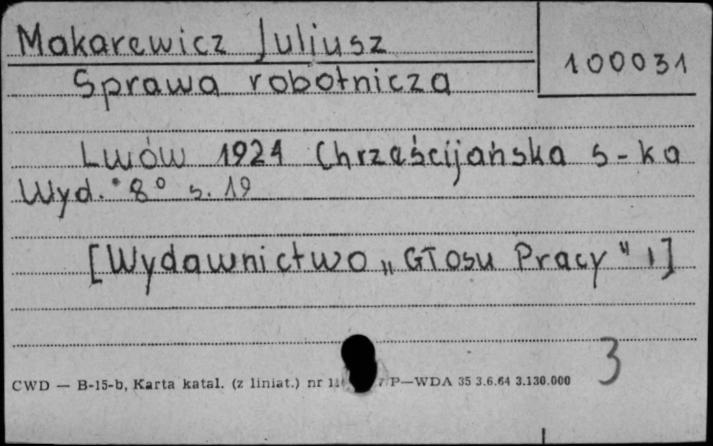 Makarewicz Juljusz
100031
Sprawa robotnicza
Lwów 1924 Chrześcijańska s-ka
Wyd. 8° s. 19
[Wydawnictwo „Głosu Pracy" 1]
3
CWD — B-15-b, Karta katal. (z liniat.) nr P—WDA 35 3.6.64 3.130.000